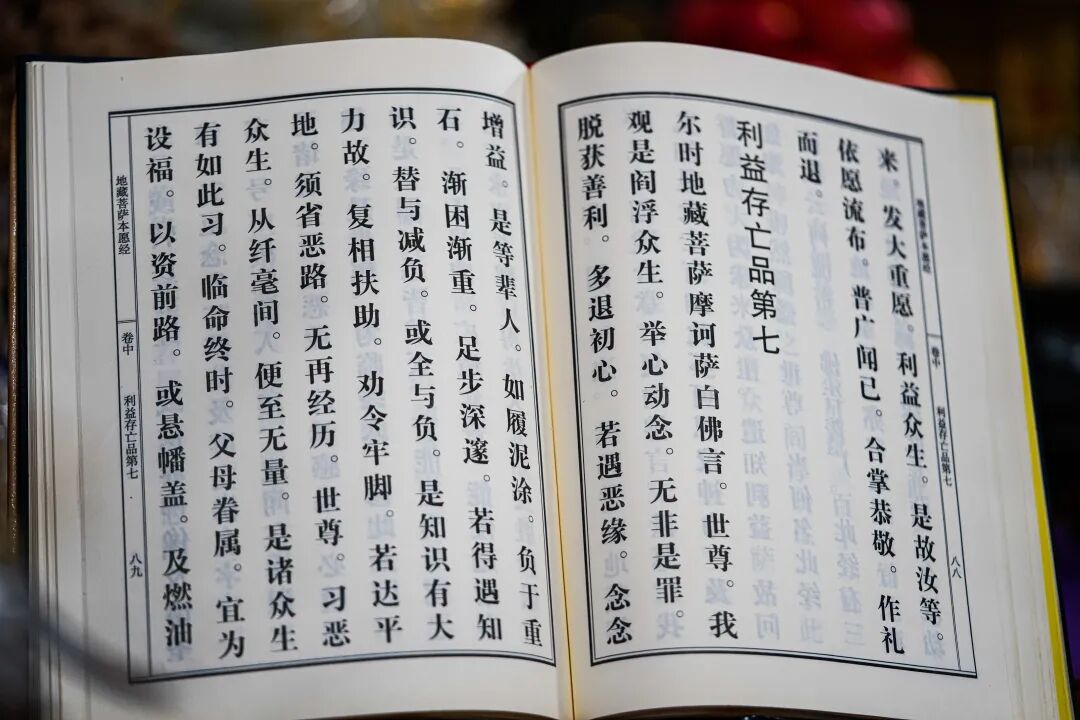 地藏菩萨本愿经 卷中 利益存亡品第七 八八
来。发大重愿。利益众生。是故汝等。
依愿流布。普广闻已。合掌恭敬。作礼
而退。
利益存亡品第七
尔时地藏菩萨摩诃萨白佛言。世尊。我
观是阎浮众生。举心动念。无非是罪。
脱获善利。多退初心。若遇恶缘。念念
增益。是等辈人。如履泥涂。负于重
石。渐困渐重。足步深邃。若得遇知
识。替与减负。或全与负。是知识有大
力故。复相扶助。劝令牢脚。若达平
地。须省恶路。无再经历。世尊。习恶
众生。从纤毫间。便至无量。是诸众生
有如此习。临命终时。父母眷属。宜为
设福。以资前路。或悬幡盖。及燃油
地藏菩萨本愿经 卷中 利益存亡品第七 八九